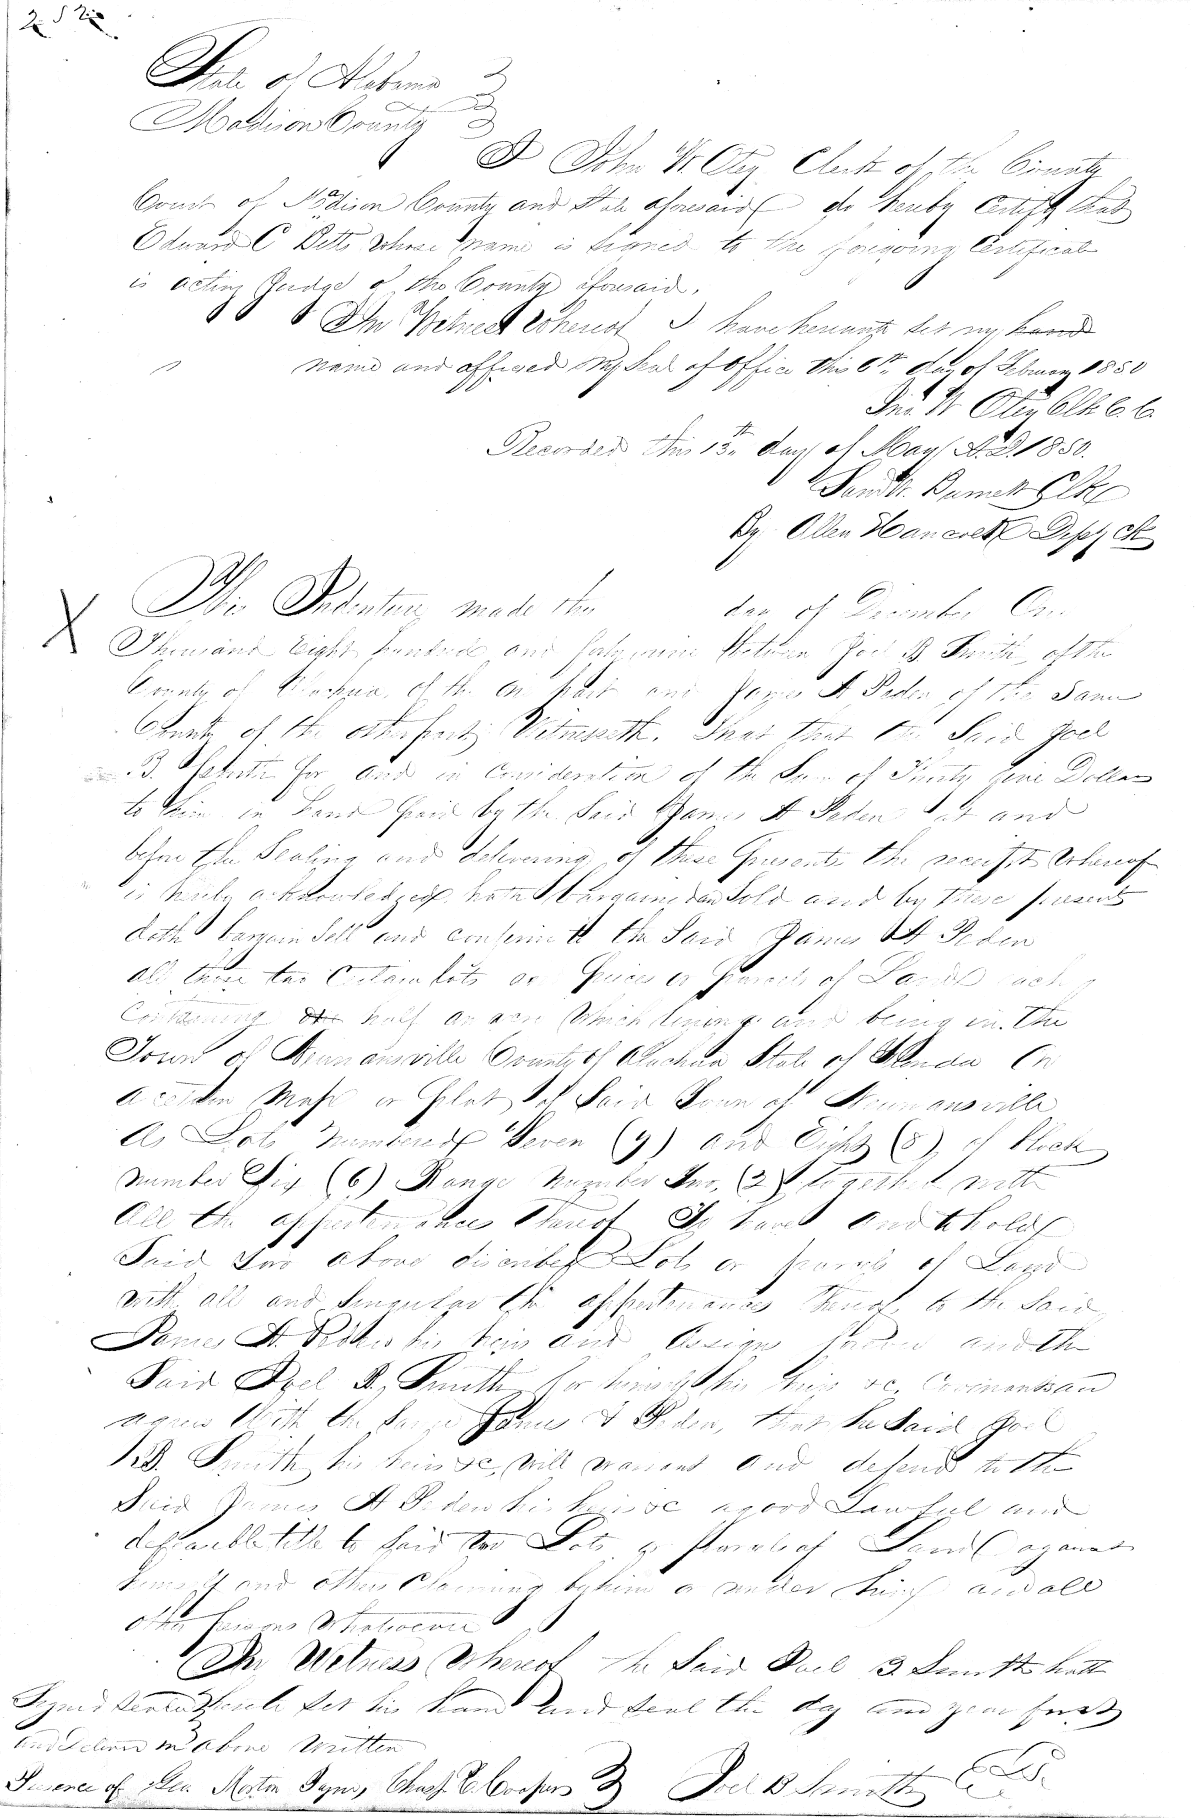 252
State of Alabama
Madison County
I John W Otey Clerk of the County
Court of Madison County and State aforesaid do hereby Certify that
Edward C Betts whose name is signed to the foregoing Certificate
is acting Judge of the County aforesaid.
In Witness Whereof I have hereunto set my hand
name and affixed my Seal of Office this 6th day of February 1850
Jno. W Otey Clk C. C.
Recorded this 13th day of May A.D. 1850.
Saml W. Burnett Clk
By Allen Hancock Depy Clk
X This Indenture made this day of December One
Thousand Eight hundred and forty nine Between Joel B Smith of the
County of Alachua of the one part and James A Peden of the Same
County of the other part, Witnesseth. That that the Said Joel
B. Smith for and in Consideration of the Sum of Thirty five Dollars
to him in hand paid by the Said James A Peden at and
before the Sealing and delivering of these presents the receipt whereof
is hereby acknowledged hath bargained and Sold and by these presents
doth bargain Sell and confirm to the Said James A Peden
all those two Certain lots or pieces or parcels of Land each
Containing one half an acre Which lying and being in the
Town of Newnansville County of Alachua State of Florida On
a certain Map or plat of Said Town of Newnansville
As Lots Numbered Seven (7) and Eight (8) of Block
number Six (6) Range Number Two, (2) together with
All the appertenances thereof To have and to hold
Said two above discribed Lots or parcels of Land
with all and Singular the appertenances thereof, to the Said
James A. Peden his heirs and Assigns forever and the
Said Joel B, Smith for himself his heirs &c,
agrees With the Said James A Peden, that he Said Joel
B. Smith his heirs &c, will warrant and defend to the
Said James A Peden his heirs &c a good Lawful and
defeasible title to Said two Lots or parcels of Land against
himself and others Claiming by him or under him and all
other persons Whatsoever
In Witness Whereof the Said Joel B Smith hath
Signed Sealed hereunto Set his hand and Seal the day and year first
and deliver in above Written
Presence of Geo Morton Tyner, Chas. C. Cooper Joel B Smith L.S.